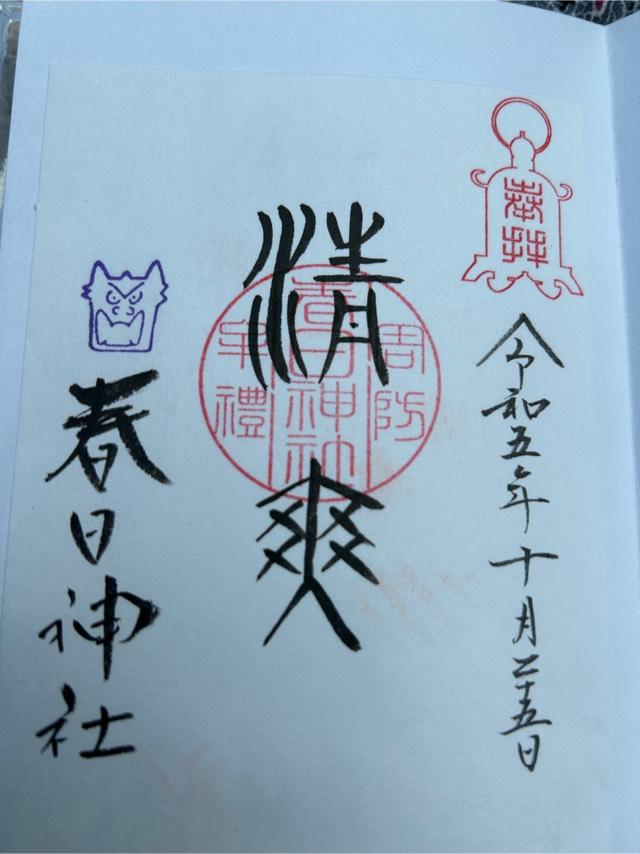 奉拝
令和五年十月二十五日
清爽
周防
春日神社
牟禮
春日神社